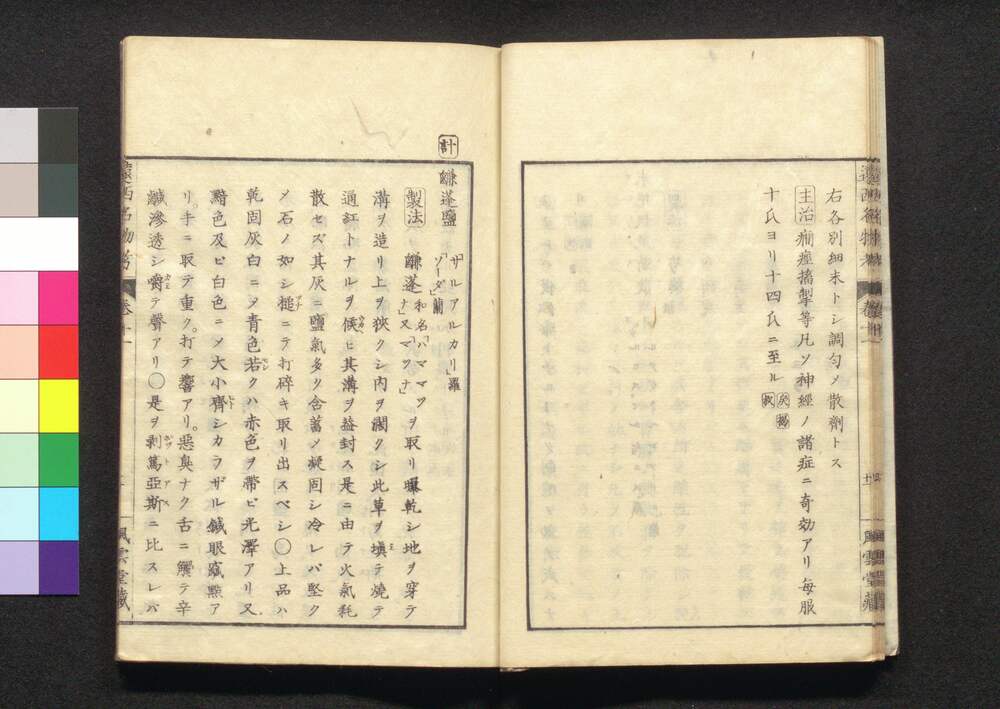 右各別細末トシ調勻メ散劑トス
主治 癇痙搐掣等凡ソ神經ノ諸症ニ奇効アリ毎服
十氏ヨリ十四氏ニ至ル
計
鹻蓬鹽 「ザルアルカリ」羅 「ゾーダ」蘭
製法 鹻蓬 和名「ハママツナ」又「マツナ」 ヲ取リ曝乾シ地ヲ穿テ
溝ヲ造リ上ヲ狹クシ内ヲ濶クシ此草ヲ塡テ燒テ
通紅トナルヲ候ヒ其溝ヲ蓋封ス是ニ由テ火氣耗
散セズ其灰ニ鹽氣多ク含蓄メ凝固シ冷レバ堅ク
メ石ノ如シ槌ニテ打碎キ取リ出スベシ〇上品ハ
乾固灰白ニメ青色若クハ赤色ヲ帶ビ光澤アリ又
黯色及ビ白色ニメ大小齊シカラザル鍼眼竅㸃ア
リ手ニ取テ重ク打テ響アリ惡臭ナク舌ニ觸テ辛
鹹滲透シ嚼テ聲アリ〇是ヲ剥篤亞斯ニ比スレバ
遠西名物考
卷十一
風雲堂藏